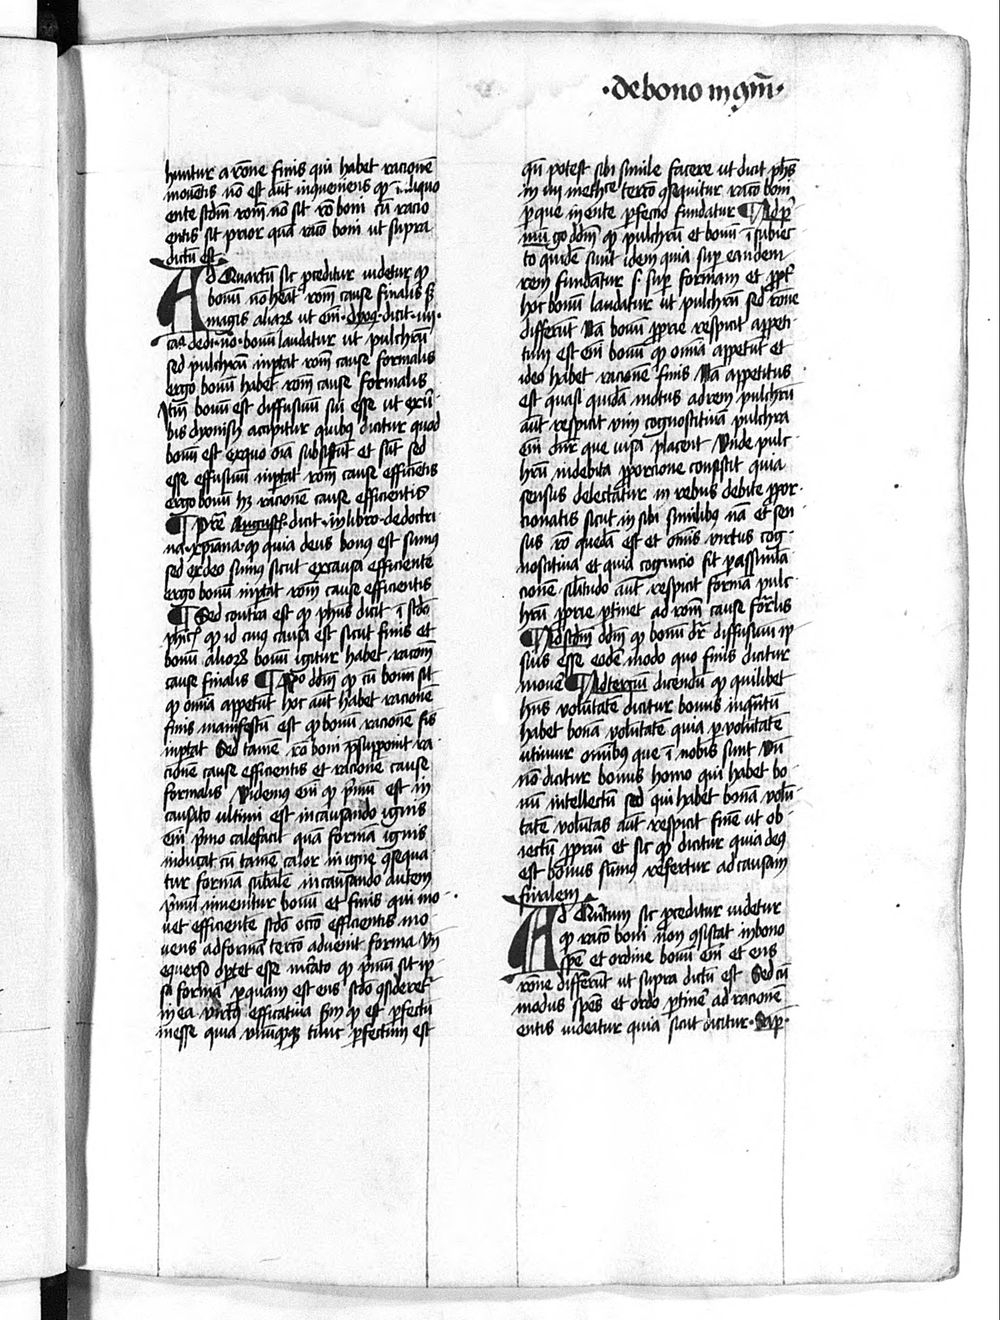 ·de bono in gn̄i·
huntur a rōne finis qui habet racionē
mouētis nō est aut̄ inqueniens qp̄ in aliquo
ente scdm̄ rom̄ nō sit rō boni cū racio
entis sit prior quā racō boni ut supra
dictū est
Ad Quartū sic proceditur uidetur qp̄
bonū nō heāt rom̄ cause finalis sꝫ
magis alioꝝ ut em̄ dyoꝰ dicit iiij
ca de di·no· bonū laudatur ut pulchrū
sed pulchrū īportat rom̄ cause formalis
ergo bonū habet rom̄ cause formalis
Itm̄ bonū est diffusiuū sui esse ut ex ū
bis dyonisij accipitur quibꝰ dicitur quod
bonū est ex quo oīa subsistūt et sūt sed
esse effusiuū īportat rom̄ cause efficiētis
ergo bonū hꝫ racionē cause efficientis
¶ Pret̄e Augustꝰ dicit in libro de doctri
na xp̄iana qp̄ quia deus bonꝰ est sumꝰ
sed ex deo sumꝰ sicut ex causa efficiente
ergo bonū īportat rom̄ cause efficientis
¶ Sed contra est qp̄ phūs dicit ī scdo
phicꝝ qp̄ id cuiꝰ causa est sicut finis et
bonū alioꝝ bonū igitur habet racom̄
cause finalis ¶ Rō dd̄m qp̄ cū bonū sit
qp̄ omīa appetūt hoc aut̄ habet racionē
finis manifestū est qp̄ bonū racionē fīs
īportat Sed tamē rō boni p̄supponit ra
cionē cause efficientis et racionē cause
formalis Videmꝰ em̄ qp̄ p̄mū est in
causato ultimū est in causando ignis
em̄ p̄mo calefacit quā formā ignis
inducat cū tamē calor in igne ꝯsequa
tur formā subālē in causando autem
p̄mū inuenitur bonū et finis qui mo
uet efficientē scdo actō efficientis mo
uens ad formā tertō aduenit forma Vn̄
e querso oportet esse in cāto qp̄ p̄mū sit ip̄
sa forma per quam est ens scdo ꝯsideret̄
in ea virtꝰ effectiua scdm qp̄ est perfectū
in esse quia vnūquodqꝫ tūc perfectum est
qn̄ potest sibi simile facere ut dicit phūs
in iiij metheo tertō ꝯsequitur racō boni
per que in ente perfectio fundatur ¶ Ad p̄
mū go dd̄m qp̄ pulchrū et bonū ī subiec
to quidē sunt idem quia sup̄ eandem
rem fundātur s· sup̄ formam et p̄pt̄
hoc bonū laudatur ut pulchrū sed rōne
differūt Nā bonū prie respicit appeti
tum est em̄ bonū qp̄ omīa appetūt et
ideo habet racionē finis Nā appetitus
est quasi quidā motus ad rem pulchrū
aut̄ respicit vim cognoscitiuā pulchra
em̄ dn̄r que uisa placent Vnde pulc
hrū in debita proporcione consistit quia
sensus delectātur in rebus debite propor
cionatis sicut in sibi similibꝰ nā et sen
sus rō quedā est et omīs virtus cog
noscitiua et quia cognicio fit per assimila
cionē silitudo aut̄ respicit formā pulc
hrū proprie ptinet ad rom̄ cause forālis
¶ Ad scdm̄ dd̄m qp̄ bonū dr̄ diffusiuū ip
sius esse eodē modo quo finis dicitur
mouē ¶ Ad terciū dicendū qp̄ quilibet
hn̄s volūtatē dicitur bonus inqn̄tū
habet bonā volūtatē quia per volūtatē
utimur omībus que ī nobis sunt Vn̄
nō dicitur bonus homo qui habet bo
nū intellectū sed qui habet bonā volū
tatē volūtas aut̄ respicit finē ut ob
iectū ppriū et sic qp̄ dicitur quia deꝰ
est bonus sumꝰ refertur ad causam
finalem
Ad Quītum sic proceditur uidetur
qp̄ racō boni non ꝯsistat in bono
spē et ordine bonū em̄ et ens
rōne differūt ut supra dictū est Sed cū
modus spēs et ordo ptinē ad racionē
entis uideatur quia sicut dicitur·Sap̄·